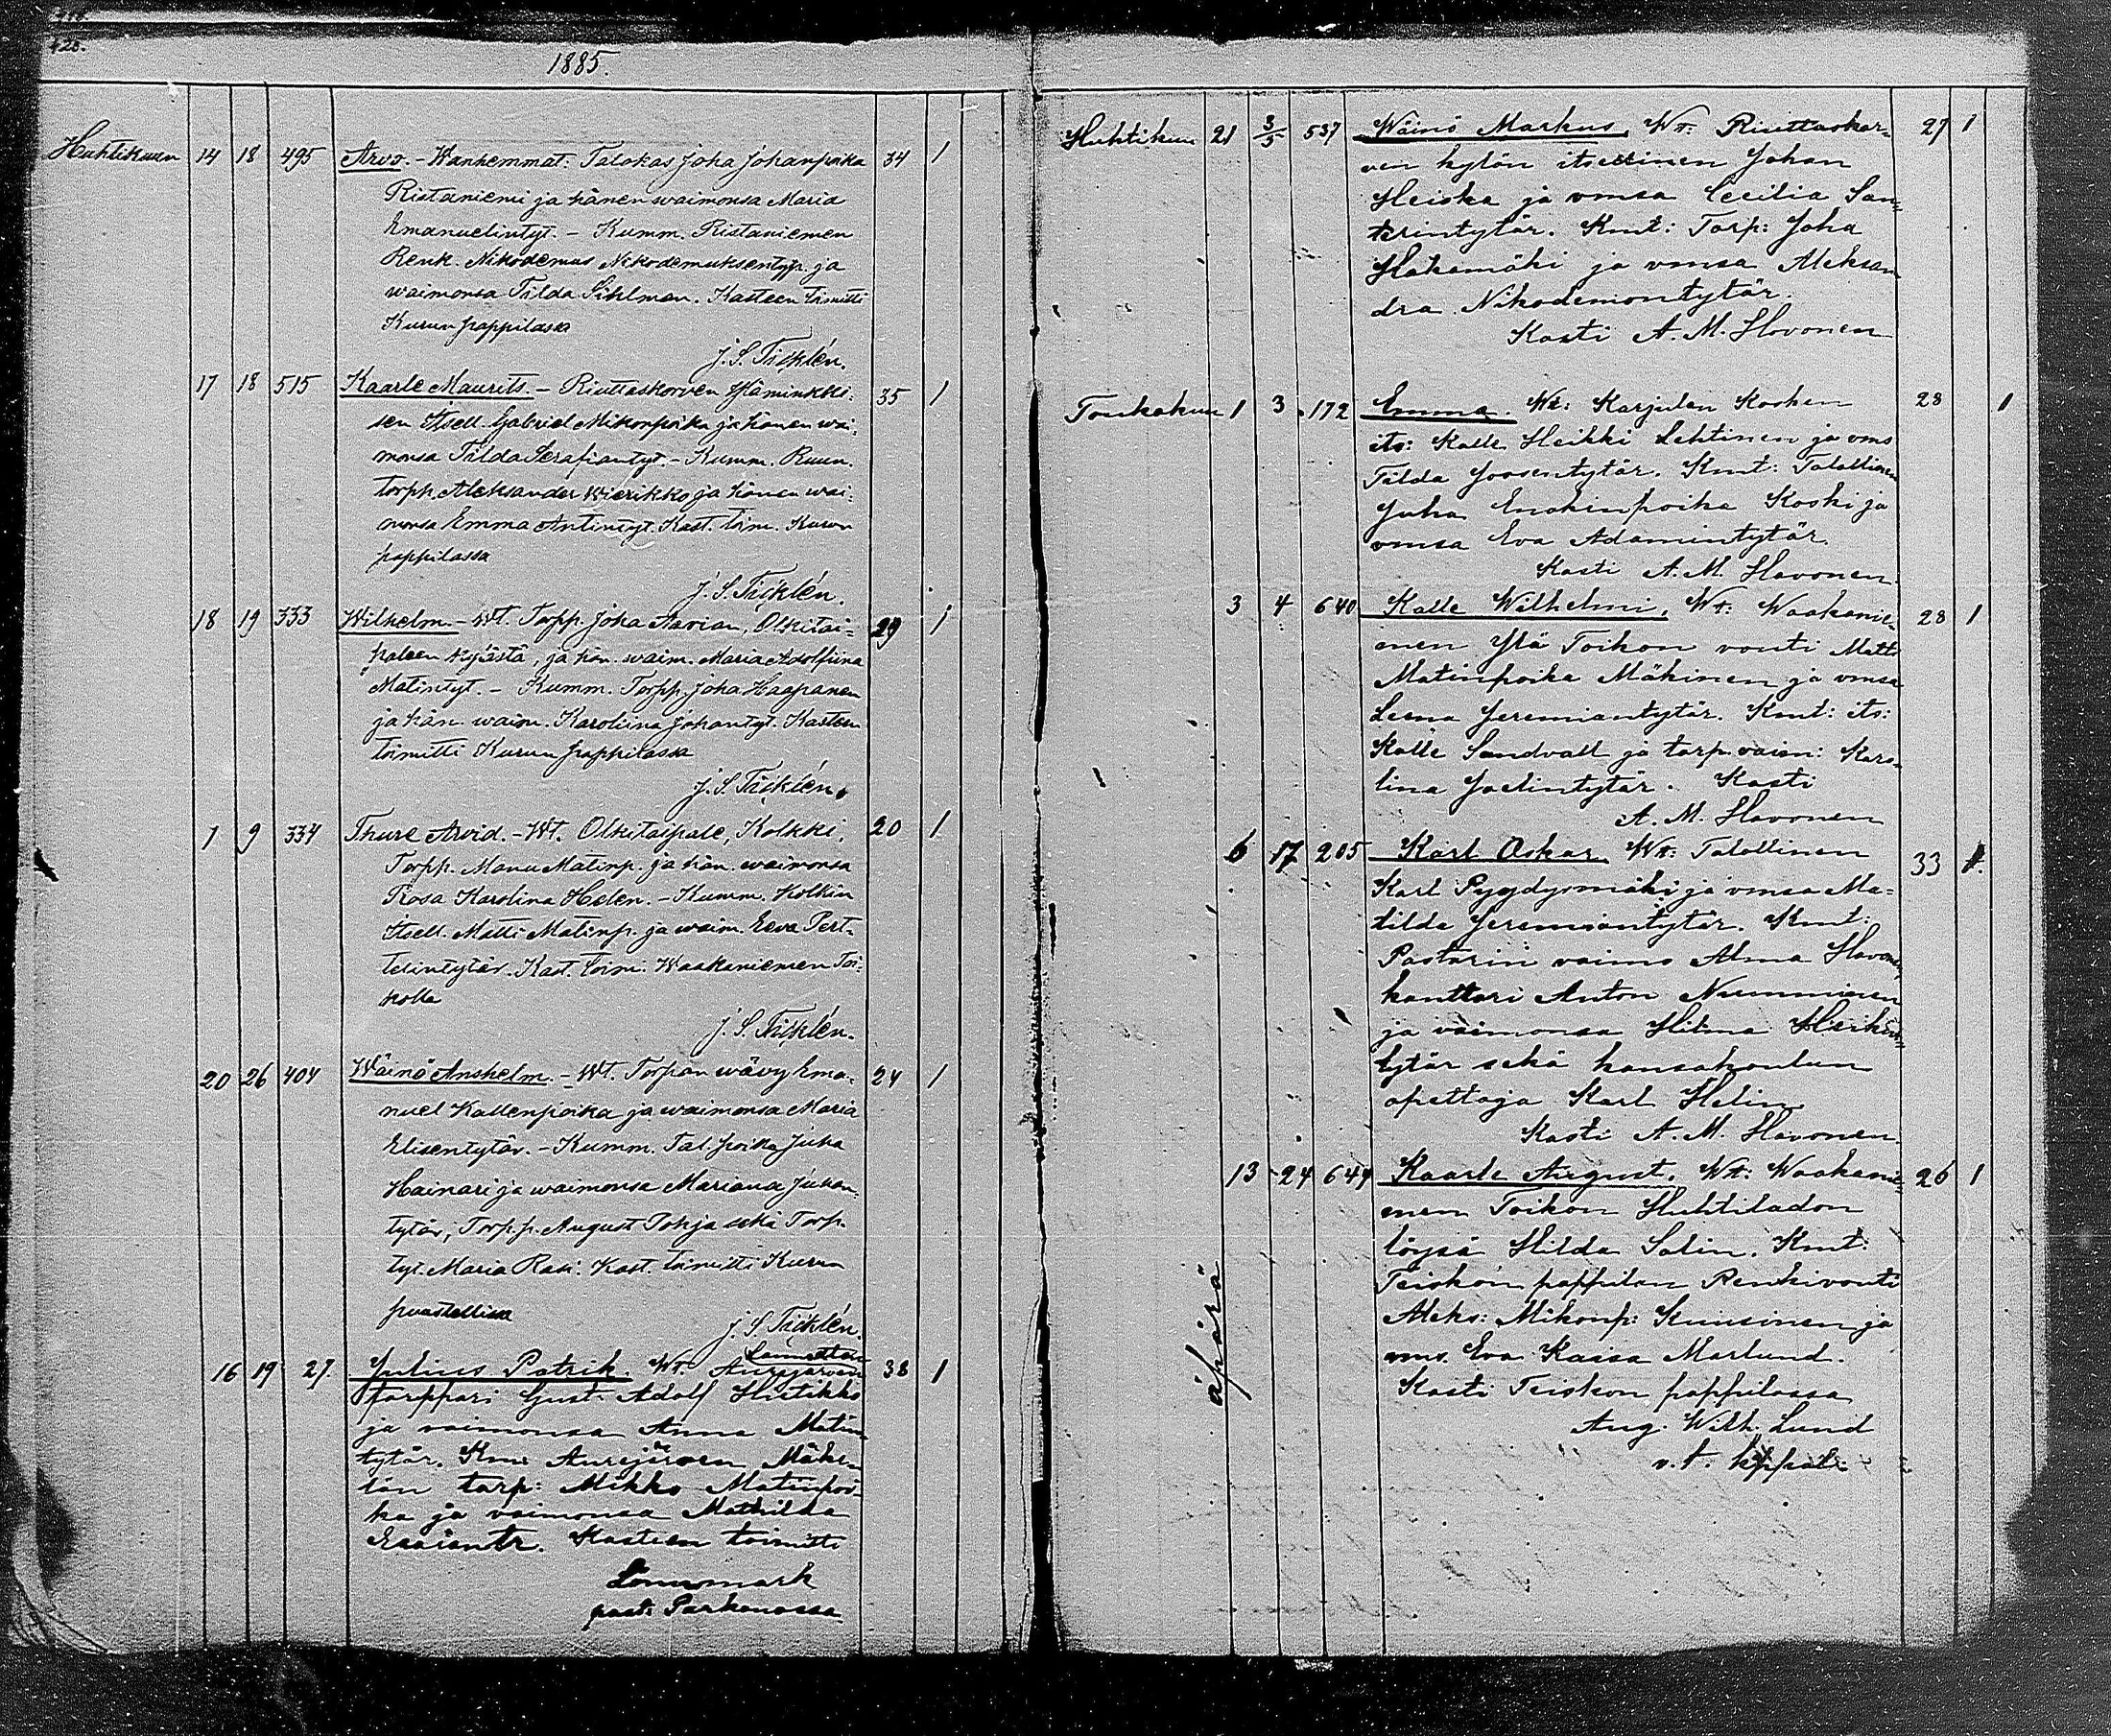 428.
1885.
Huhtikuun 14 18 495 Arvo. - Wanhemmat: Talokas Joha Johanpoika 34 1
Ristaniemi ja hänen waimonsa Maria
Emanuelintyt. - Kumm. Ristaniemen
Renk. Nikodemus Nikodemuksenp. ja
waimonsa Tilda Sihlman. Kasteen toimitti
Kurun pappilassa
J. S. Ticklén.
17 18 515 Kaarle Maurits. - Riuttaskorven Häminkki- 35 1
sen Itsell. Gabriel Mikonpoika ja hänen wai-
monsa Tilda Serafiantyt. - Kumm. Ruun.
torpp. Aleksander Wierikko ja hänen wai-
monsa Emma Antintyt. Kast. toim. Kurun
pappilassa
J. S. Ticklén.
18 19 333 Wilhelm. - Wt. Torpp. Joha Aavian, Olkitai= 29 1
paleen kylästä, ja hän. waim. Maria Adolfiina
Matintyt. - Kumm. Torpp. Joha Haapanen
ja hän waim. Karoliina Johantyt. Kasteen
toimitti Kurun pappilassa
J. S. Ticklén.
1 9 334 Thure Arvid. - Wt. Olkitaipale, Kolkki, 20 1
Torpp. Manu Matinp. ja hän. waimonsa
Rosa Karolina Helen. - Kumm. Kolkin
Itsell. Matti Matinp. ja waim. Eeva Pert-
telintytär. Kast. toim: Waakaniemen Toi-
kolla
J. S. Ticklén.
20 26 404 Wäinö Anshelm. - Wt. Torpan wävy Ema- 24 1
nuel Kallenpoika ja waimonsa Maria
Elisentytär. - Kumm. Tal. poika Juha
Hainari ja waimonsa Mariana Juhan-
tytär, Torpp. August Pohja sekä Torp.
tyt. Maria Rasi. Kast. toimitti Kurun
puustellissa
J. S. Ticklén.
16 19 27. Julius Patrik. Wt. Aurejärven 38 1
torppari Gust. Adolf Hietikko
ja vaimonsa Anna Matin-
tytär. Km: Aurejärven Mäke-
län torp: Mikko Matinpoi-
ka ja vaimonsa Mathilda
Esaiantr. Kasteen toimitti
Lönnmark
past: Parkanossa
Huhtikuu 21 3/5 537 Wäinö Markus. Wt: Riuttaskor- 27 1
ven kylän itsellinen Johan
Heiska ja vmsa Cecilia San-
terintytär. Kmt: Torp: Joha
Hakamäki ja vmsa Aleksan
dra Nikodemontytär.
Kasti A. M. Hovonen
Toukokuu 1 3 172 Emma. Wt: Karjulan Kosken 28 1
its: Kalle Heikki Lehtinen ja vms
Tilda Joosentytär. Kmt: Talollinen
Juha Enokinpoika Koski ja
vmsa Eva Adamintytär.
Kasti A. M. Hovonen.
3 4 640 Kalle Wilhelmi. Wt: Waakanie- 28 1
men Ylä Toikon vouti Matti
Matinpoika Mäkinen ja vmsa
Leena Jeremiantytär. Kmt: its:
Kalle Sandvall ja torp. vaim: Karo-
lina Joelintytär. Kasti
A. M. Hovonen
6 17 205 Karl Oskar. Wt: Talollinen 33 1.
Karl Pyydysmäki ja vmsa Ma=
tilda Jeremiantytär. Kmt:
Pastorin vaimo Alma Hovonen,
kanttori Anton Numminen
ja vaimonsa Hilma Heikin-
tytär sekä kansakoulun
opettaja Karl Helin
Kasti A. M. Hovonen.
äpärä
13 24 644 Kaarle August. Wt: Waakanie- 26 1
men Toikon Huhtiladon
löysä Hilda Salin. Kmt:
Teiskon pappilan Renkivouti
Aleks: Mikonp: Kuusinen ja
vms. Eva Kaisa Marlund.
Kasti Teiskon pappilassa
Aug. Wilh. Lund
v. t. kppal: